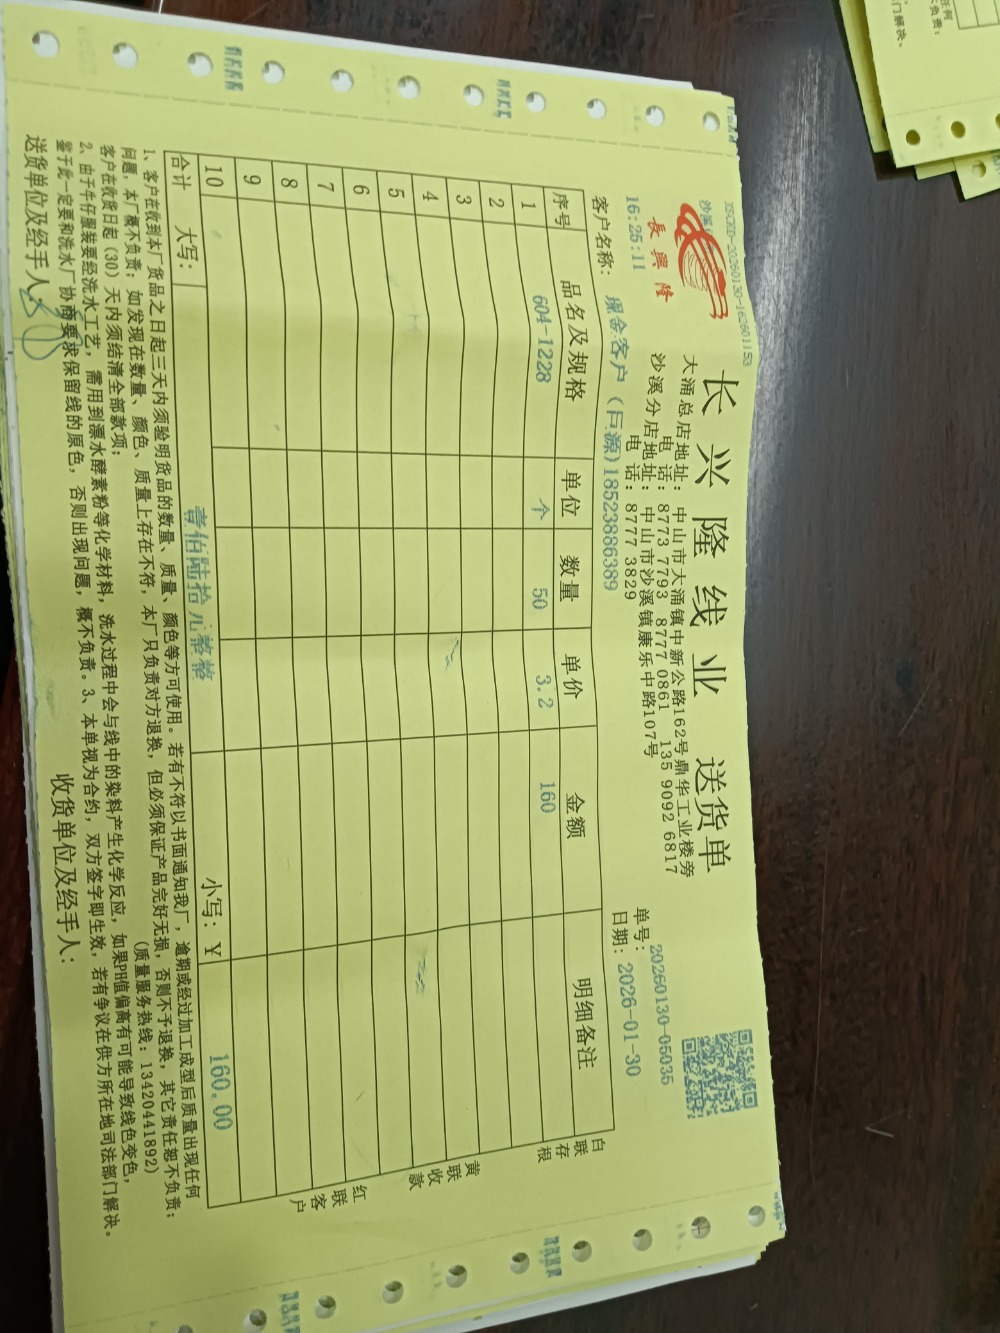 XSCKD-20260130-162601153
長興隆
长兴隆线业 送货单
大涌总店地址：中山市大涌镇中新公路162号鼎华工业楼旁
电话：8773 7793 8777 0861 135 9092 6817
沙溪分店地址：中山市沙溪镇康乐中路107号
电话：8777 3829
16:25:11
单号：20260130-05035
日期：2026-01-30
客户名称：现金客户（巨源)18523886389
序号 品名及规格 单位 数量 单价 金额 明细备注
1 604-1228 个 50 3.2 160
2
3
4
5
6
7
8
9
10
合计 大写：壹佰陆拾元整整 小写：¥ 160.00
白联存根
黄联收款
红联客户
1、客户在收到本厂货品之日起三天内须验明货品的数量、质量、颜色等方可使用。若有不符以书面通知我厂，逾期或经过加工成型后质量出现任何
问题，本厂概不负责；如发现在数量、颜色、质量上存在不符，本厂只负责对方退换，但必须保证产品完好无损，否则不予退换，其它责任恕不负责；
客户在收货日起（30）天内须结清全部款项； （质量服务热线：13420441892）
2、由于牛仔服装要经洗水工艺，需用到漂水酵素粉等化学材料，洗水过程中会与线中的染料产生化学反应，如果PH值偏高有可能导致线色变色，
鉴于此一定要和洗水厂协商要求保留线的原色，否则出现问题，概不负责。3、本单视为合约，双方签字即生效，若有争议在供方所在地司法部门解决。
送货单位及经手人： 收货单位及经手人：
任何
负责；
门解决。